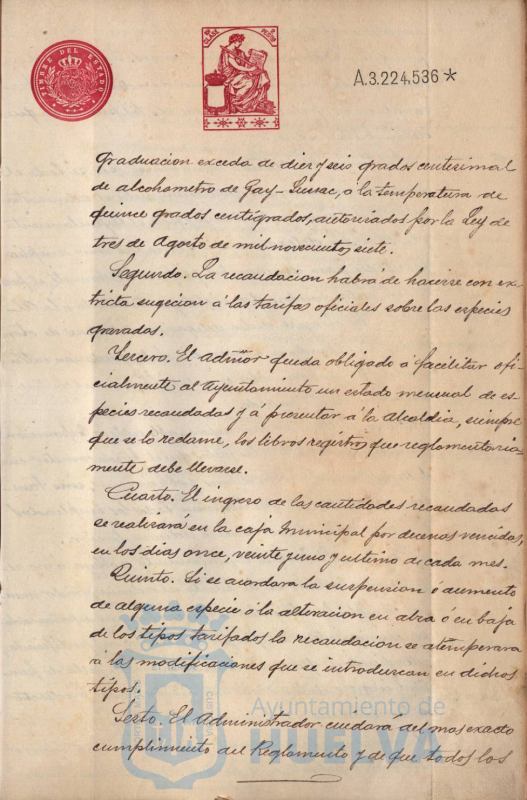 TIMBRE DEL ESTADO
CLASE
A.3.224.536*
graduacion exceda de diez y seis grados centesimal
de alcohometro de Gay-Lussac, á la temperatura de
quince grados centigrados, autorizados por la Ley de
tres de Agosto de mil novecientos siete.
Segundo. La recaudacion habrá de hacerse con ex-
tricta sugecion á las tarifas oficiales sobre las especies
gravadas.
Tercero. El admñor queda obligado á facilitar ofi-
cialmente al Ayuntamiento un estado mensual de es-
pecies recaudadas y á presentar á la Alcaldia, siempre
que se lo reclame, los libros registros que reglamentaria-
mente debe llevarse.
Cuarto. El ingreso de las cantidades recaudadas
se realizará en la caja Municipal por decenas vencidas,
en los dias once, veinte y uno y ultimo de cada mes.
Quinto. Si se acordara la suspension ó aumento
de alguna especie ó la alteracion en alza ó en baja
de los tipos tarifados la recaudacion se atemperara
á las modificaciones que se introduzcan en dichos
tipos.
Sexto. El Administrador cuidará del mas exacto
cumplimiento del Reglamento y de que todos los
Ayuntamiento de
HUELVA